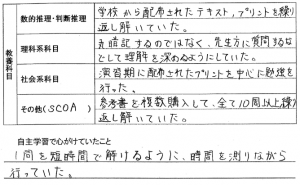 教養科目
数的推理・判断推理
学校から配布されたテキスト,プリントを繰り
返し解いていた。
理科系科目
丸暗記するのではなく、先生方に質問するな
どして理解を深めるようにしていた。
社会系科目
演習期に配布されたプリントを中心に勉強を
行った。
その他(SCOA)
参考書を複数購入して、全て10周以上繰り
返し解いていた。
自主学習で心がけていたこと
1問を短時間で解けるように、時間を測りながら
行っていた。